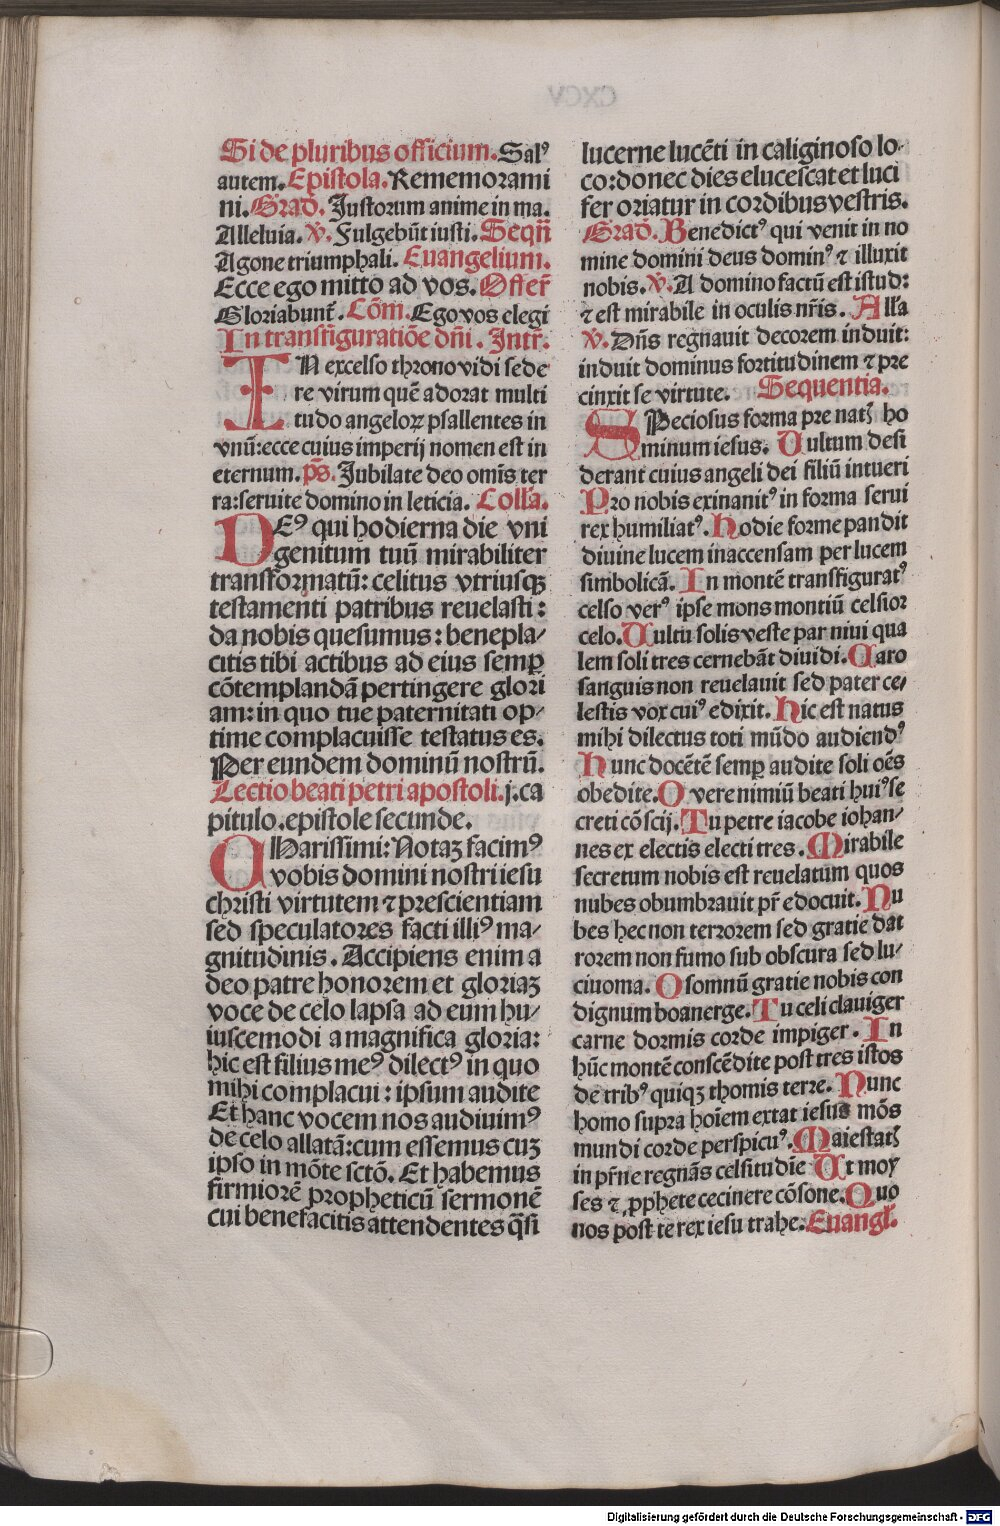 Si de pluribus officium. Salꝰ
autem. Epistola. Rememorami
ni. Grad̄. Justorum anime in ma.
Alleluia. v̄. Fulgebūt iusti. Seqūn
Agone triumphali. Euangelium.
Ecce ego mitto ad vos. Offer̄
Gloriabunt̄. Cōm. Ego vos elegi
In transfiguratiōe dn̄i. Intr̄.
IN excelso throno vidi sede
re virum quē adorat multi
tudo angeloꝝ psallentes in
vnū: ecce cuius imperij nomen est in
eternum. p̄s. Jubilate deo omīs ter
ra: seruite domino in leticia. Colla.
DEꝰ qui hodierna die vni
genitum tuū mirabiliter
transformatū: celitus vtriusqꝫ
testamenti patribus reuelasti:
da nobis quesumus: benepla-
citis tibi actibus ad eius semꝑ
cōtemplandā pertingere glori
am: in quo tue paternitati op-
time complacuisse testatus es.
Per eundem dominū nostrū.
Lectio beati petri apostoli. j. ca
pitulo. epistole secunde.
CHarissimi: Notaꝫ facimꝰ
vobis domini nostri iesu
christi virtutem ⁊ prescientiam
sed speculatores facti illiꝰ ma-
gnitudinis. Accipiens enim a
deo patre honorem et gloriaꝫ
voce de celo lapsa ad eum hu-
iuscemodi a magnifica gloria:
hic est filius meꝰ dilectꝰ in quo
mihi complacui: ipsum audite
Et hanc vocem nos audiuimꝰ
de celo allatā: cum essemus cuꝫ
ipso in mōte sctō. Et habemus
firmiorē propheticū sermonē
cui benefacitis attendentes q̄si
lucerne lucēti in caliginoso lo-
co: donec dies elucescat et luci
fer oriatur in cordibus vestris.
Grad̄. Benedictꝰ qui venit in no
mine domini deus dominꝰ ⁊ illuxit
nobis. v̄. A domino factū est istud:
⁊ est mirabile in oculis nr̄is. Alla
v̄. Dn̄s regnauit decorem induit:
induit dominus fortitudinem ⁊ pre
cinxit se virtute. Sequentia.
SPeciosus forma pre natꝭ ho
minum iesus. Uultum desi
derant cuius angeli dei filiū intueri
Pro nobis exinanitꝰ in forma serui
rex humiliatꝰ. Hodie forme pandit
diuine lucem inaccensam per lucem
simbolicā. In montē transfiguratꝰ
celso verꝰ ipse mons montiū celsior
celo. Uultu solis veste par niui qua
lem soli tres cernebāt diuidi. Caro
sanguis non reuelauit sed pater ce-
lestis vox cuiꝰ edixit. Hic est natus
mihi dilectus toti mūdo audiendꝰ
Hunc docētē semꝑ audite soli oēs
obedite. O vere nimiū beati huiꝰ se
creti cōscij. Tu petre iacobe iohan-
nes ex electis electi tres. Mirabile
secretum nobis est reuelatum quos
nubes obumbrauit pr̄ edocuit. Nu
bes hec non terrorem sed gratie dat
rorem non fumo sub obscura sed lu-
ciuoma. O somnū gratie nobis con
dignum boanerge. Tu celi clauiger
carne dormis corde impiger. In
hūc montē conscēdite post tres istos
de tribꝰ quiqꝫ thomis terre. Nunc
homo supra hoīem extat iesus mōs
mundi corde perspicuꝰ. Maiestatꝭ
in pr̄ne regnās celsitudīe Ut moy
ses ⁊ ꝓphete cecinere cōsone. Quo
nos post te rex iesu trahe: Euangl̄.
CXCV
Digitalisierung gefördert durch die Deutsche Forschungsgemeinschaft - DFG